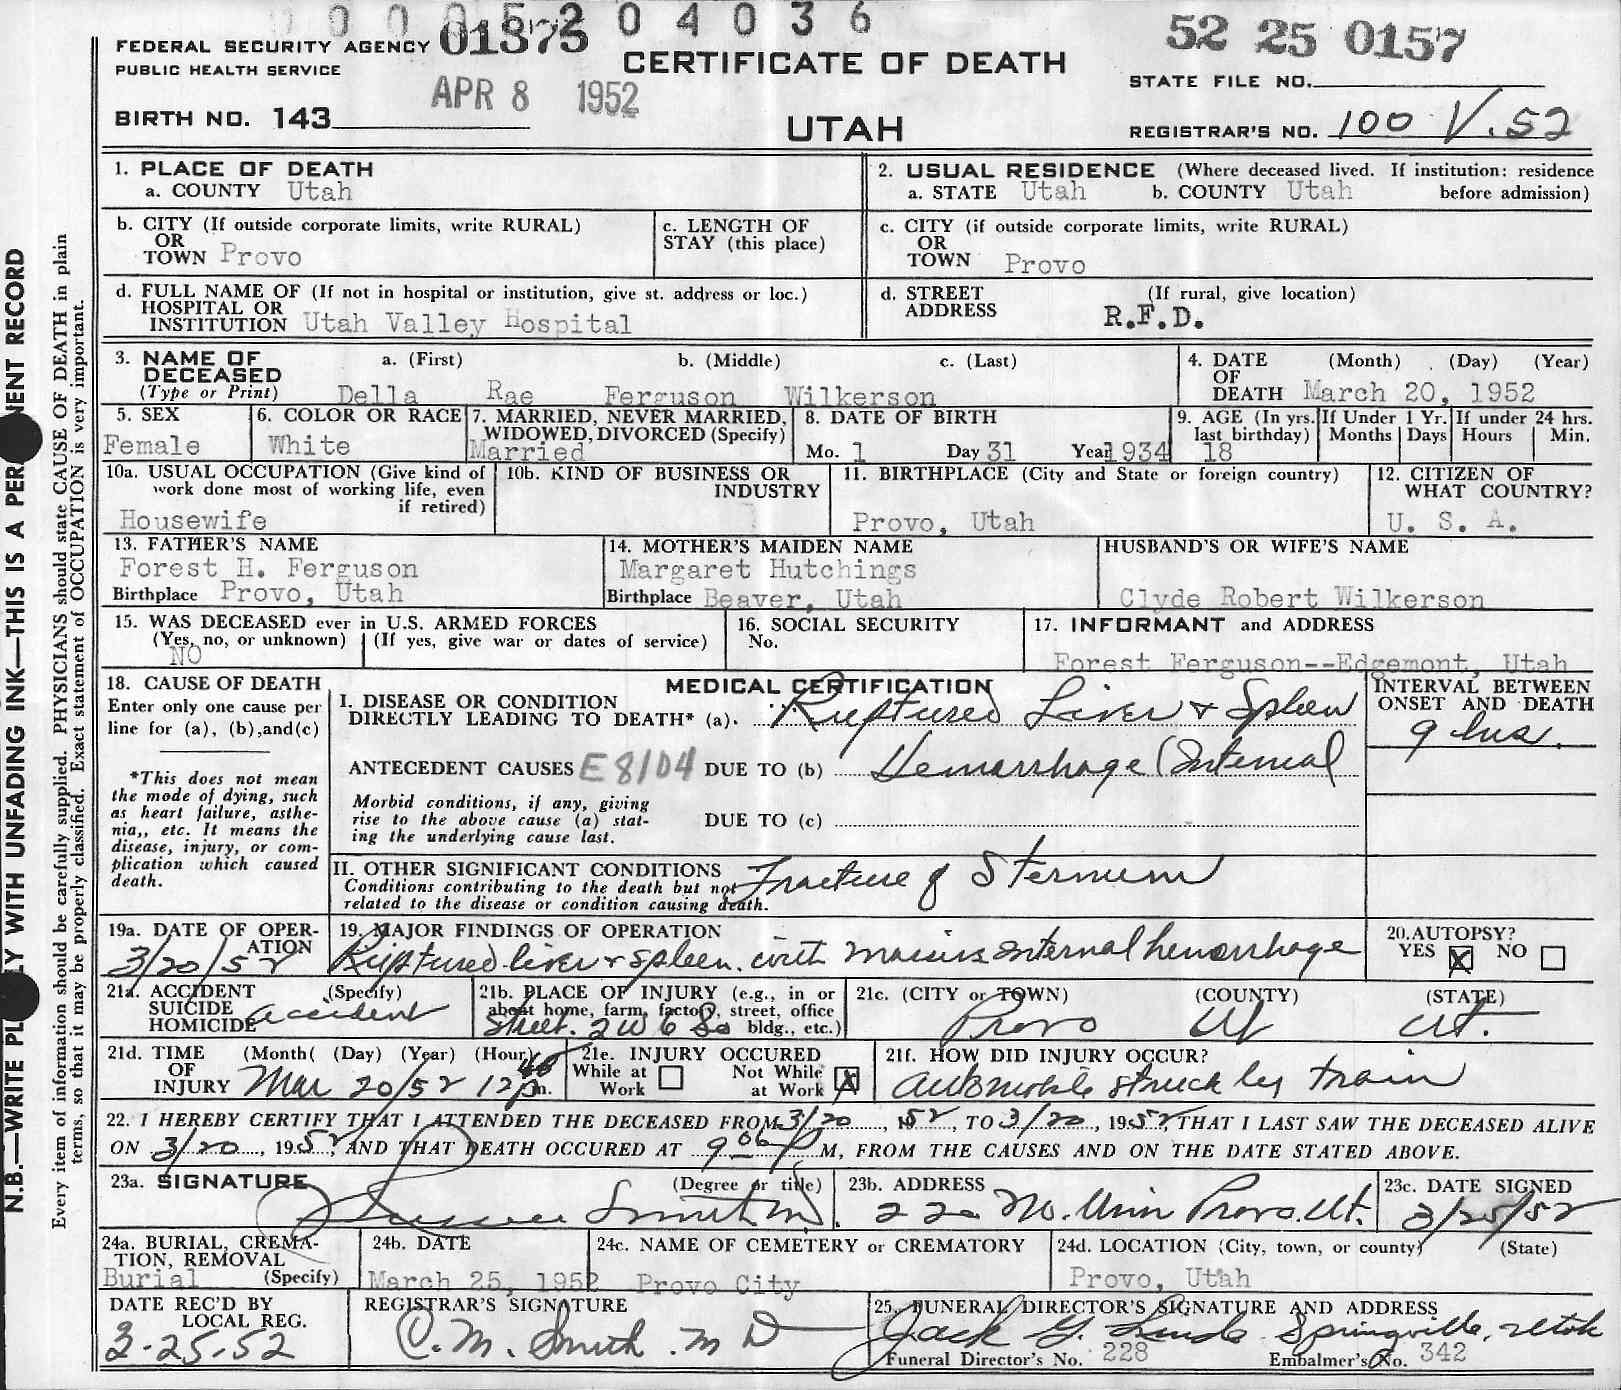 0 0 0 5 2 0 4 0 3 6
FEDERAL SECURITY AGENCY 01375
PUBLIC HEALTH SERVICE
APR 8 1952
BIRTH NO. 143
CERTIFICATE OF DEATH
UTAH
52 25 0157
STATE FILE NO.
REGISTRAR'S NO. 100 V.52
N.B.—WRITE PLAINLY WITH UNFADING INK—THIS IS A PERMANENT RECORD
Every item of information should be carefully supplied. PHYSICIANS should state CAUSE OF DEATH in plain
terms, so that it may be properly classified. Exact statement of OCCUPATION is very important.
1. PLACE OF DEATH
a. COUNTY Utah
2. USUAL RESIDENCE (Where deceased lived. If institution: residence
a. STATE Utah b. COUNTY Utah before admission)
b. CITY (If outside corporate limits, write RURAL)
OR
TOWN Provo
c. LENGTH OF
STAY (this place)
c. CITY (if outside corporate limits, write RURAL)
OR
TOWN Provo
d. FULL NAME OF (If not in hospital or institution, give st. address or loc.)
HOSPITAL OR
INSTITUTION Utah Valley Hospital
d. STREET (If rural, give location)
ADDRESS R.F.D.
3. NAME OF a. (First) b. (Middle) c. (Last)
DECEASED
(Type or Print) Della Rae Ferguson Wilkerson
4. DATE (Month) (Day) (Year)
OF
DEATH March 20, 1952
5. SEX
Female
6. COLOR OR RACE
White
7. MARRIED, NEVER MARRIED,
WIDOWED, DIVORCED (Specify)
Married
8. DATE OF BIRTH
Mo. 1 Day 31 Year 1934
9. AGE (In yrs.
last birthday)
18
If Under 1 Yr.
Months Days
If under 24 hrs.
Hours Min.
10a. USUAL OCCUPATION (Give kind of
work done most of working life, even
if retired)
Housewife
10b. KIND OF BUSINESS OR
INDUSTRY
11. BIRTHPLACE (City and State or foreign country)
Provo, Utah
12. CITIZEN OF
WHAT COUNTRY?
U. S. A.
13. FATHER'S NAME
Forest H. Ferguson
Birthplace Provo, Utah
14. MOTHER'S MAIDEN NAME
Margaret Hutchings
Birthplace Beaver, Utah
HUSBAND'S OR WIFE'S NAME
Clyde Robert Wilkerson
15. WAS DECEASED ever in U.S. ARMED FORCES
(Yes, no, or unknown) (If yes, give war or dates of service)
NO
16. SOCIAL SECURITY
No.
17. INFORMANT and ADDRESS
Forest Ferguson--Edgemont, Utah
18. CAUSE OF DEATH
Enter only one cause per
line for (a), (b),and(c)
*This does not mean
the mode of dying, such
as heart failure, asthe-
nia,, etc. It means the
disease, injury, or com-
plication which caused
death.
MEDICAL CERTIFICATION
I. DISEASE OR CONDITION
DIRECTLY LEADING TO DEATH* (a). Ruptured Liver & Spleen
ANTECEDENT CAUSES E8104 DUE TO (b) Hemorrhage (Internal
Morbid conditions, if any, giving
rise to the above cause (a) stat-
ing the underlying cause last.
DUE TO (c)
INTERVAL BETWEEN
ONSET AND DEATH
9 hrs.
II. OTHER SIGNIFICANT CONDITIONS
Conditions contributing to the death but not
related to the disease or condition causing death.
Fracture of Sternum
19a. DATE OF OPER-
ATION
3/20/52
19. MAJOR FINDINGS OF OPERATION
Ruptured liver & spleen. with massive internal hemorrhage
20. AUTOPSY?
YES X NO
21a. ACCIDENT (Specify)
SUICIDE
HOMICIDE accident
21b. PLACE OF INJURY (e.g., in or
about home, farm, factory, street, office
bldg., etc.)
Street. 2 W 6 So
21c. (CITY or TOWN) (COUNTY) (STATE)
Provo Ut Ut.
21d. TIME (Month( (Day) (Year) (Hour)
OF
INJURY Mar 20/52 12 40 pm.
21e. INJURY OCCURED
While at Not While
Work at Work X
21f. HOW DID INJURY OCCUR?
automobile struck by train
22. I HEREBY CERTIFY THAT I ATTENDED THE DECEASED FROM 3/20, 1952, TO 3/20, 1952, THAT I LAST SAW THE DECEASED ALIVE
ON 3/20, 1952, AND THAT DEATH OCCURED AT 9 06 P M, FROM THE CAUSES AND ON THE DATE STATED ABOVE.
23a. SIGNATURE (Degree or title)
Smith
23b. ADDRESS
220 No. Univ Provo. Ut.
23c. DATE SIGNED
3/25/52
24a. BURIAL, CREMA-
TION, REMOVAL
Burial (Specify)
24b. DATE
March 25, 1952
24c. NAME OF CEMETERY or CREMATORY
Provo City
24d. LOCATION (City, town, or county) (State)
Provo, Utah
DATE REC'D BY
LOCAL REG.
3-25-52
REGISTRAR'S SIGNATURE
C. M. Smith. M D
25. FUNERAL DIRECTOR'S SIGNATURE AND ADDRESS
Jack G. Springville, Utah
Funeral Director's No. 228 Embalmer's No. 342